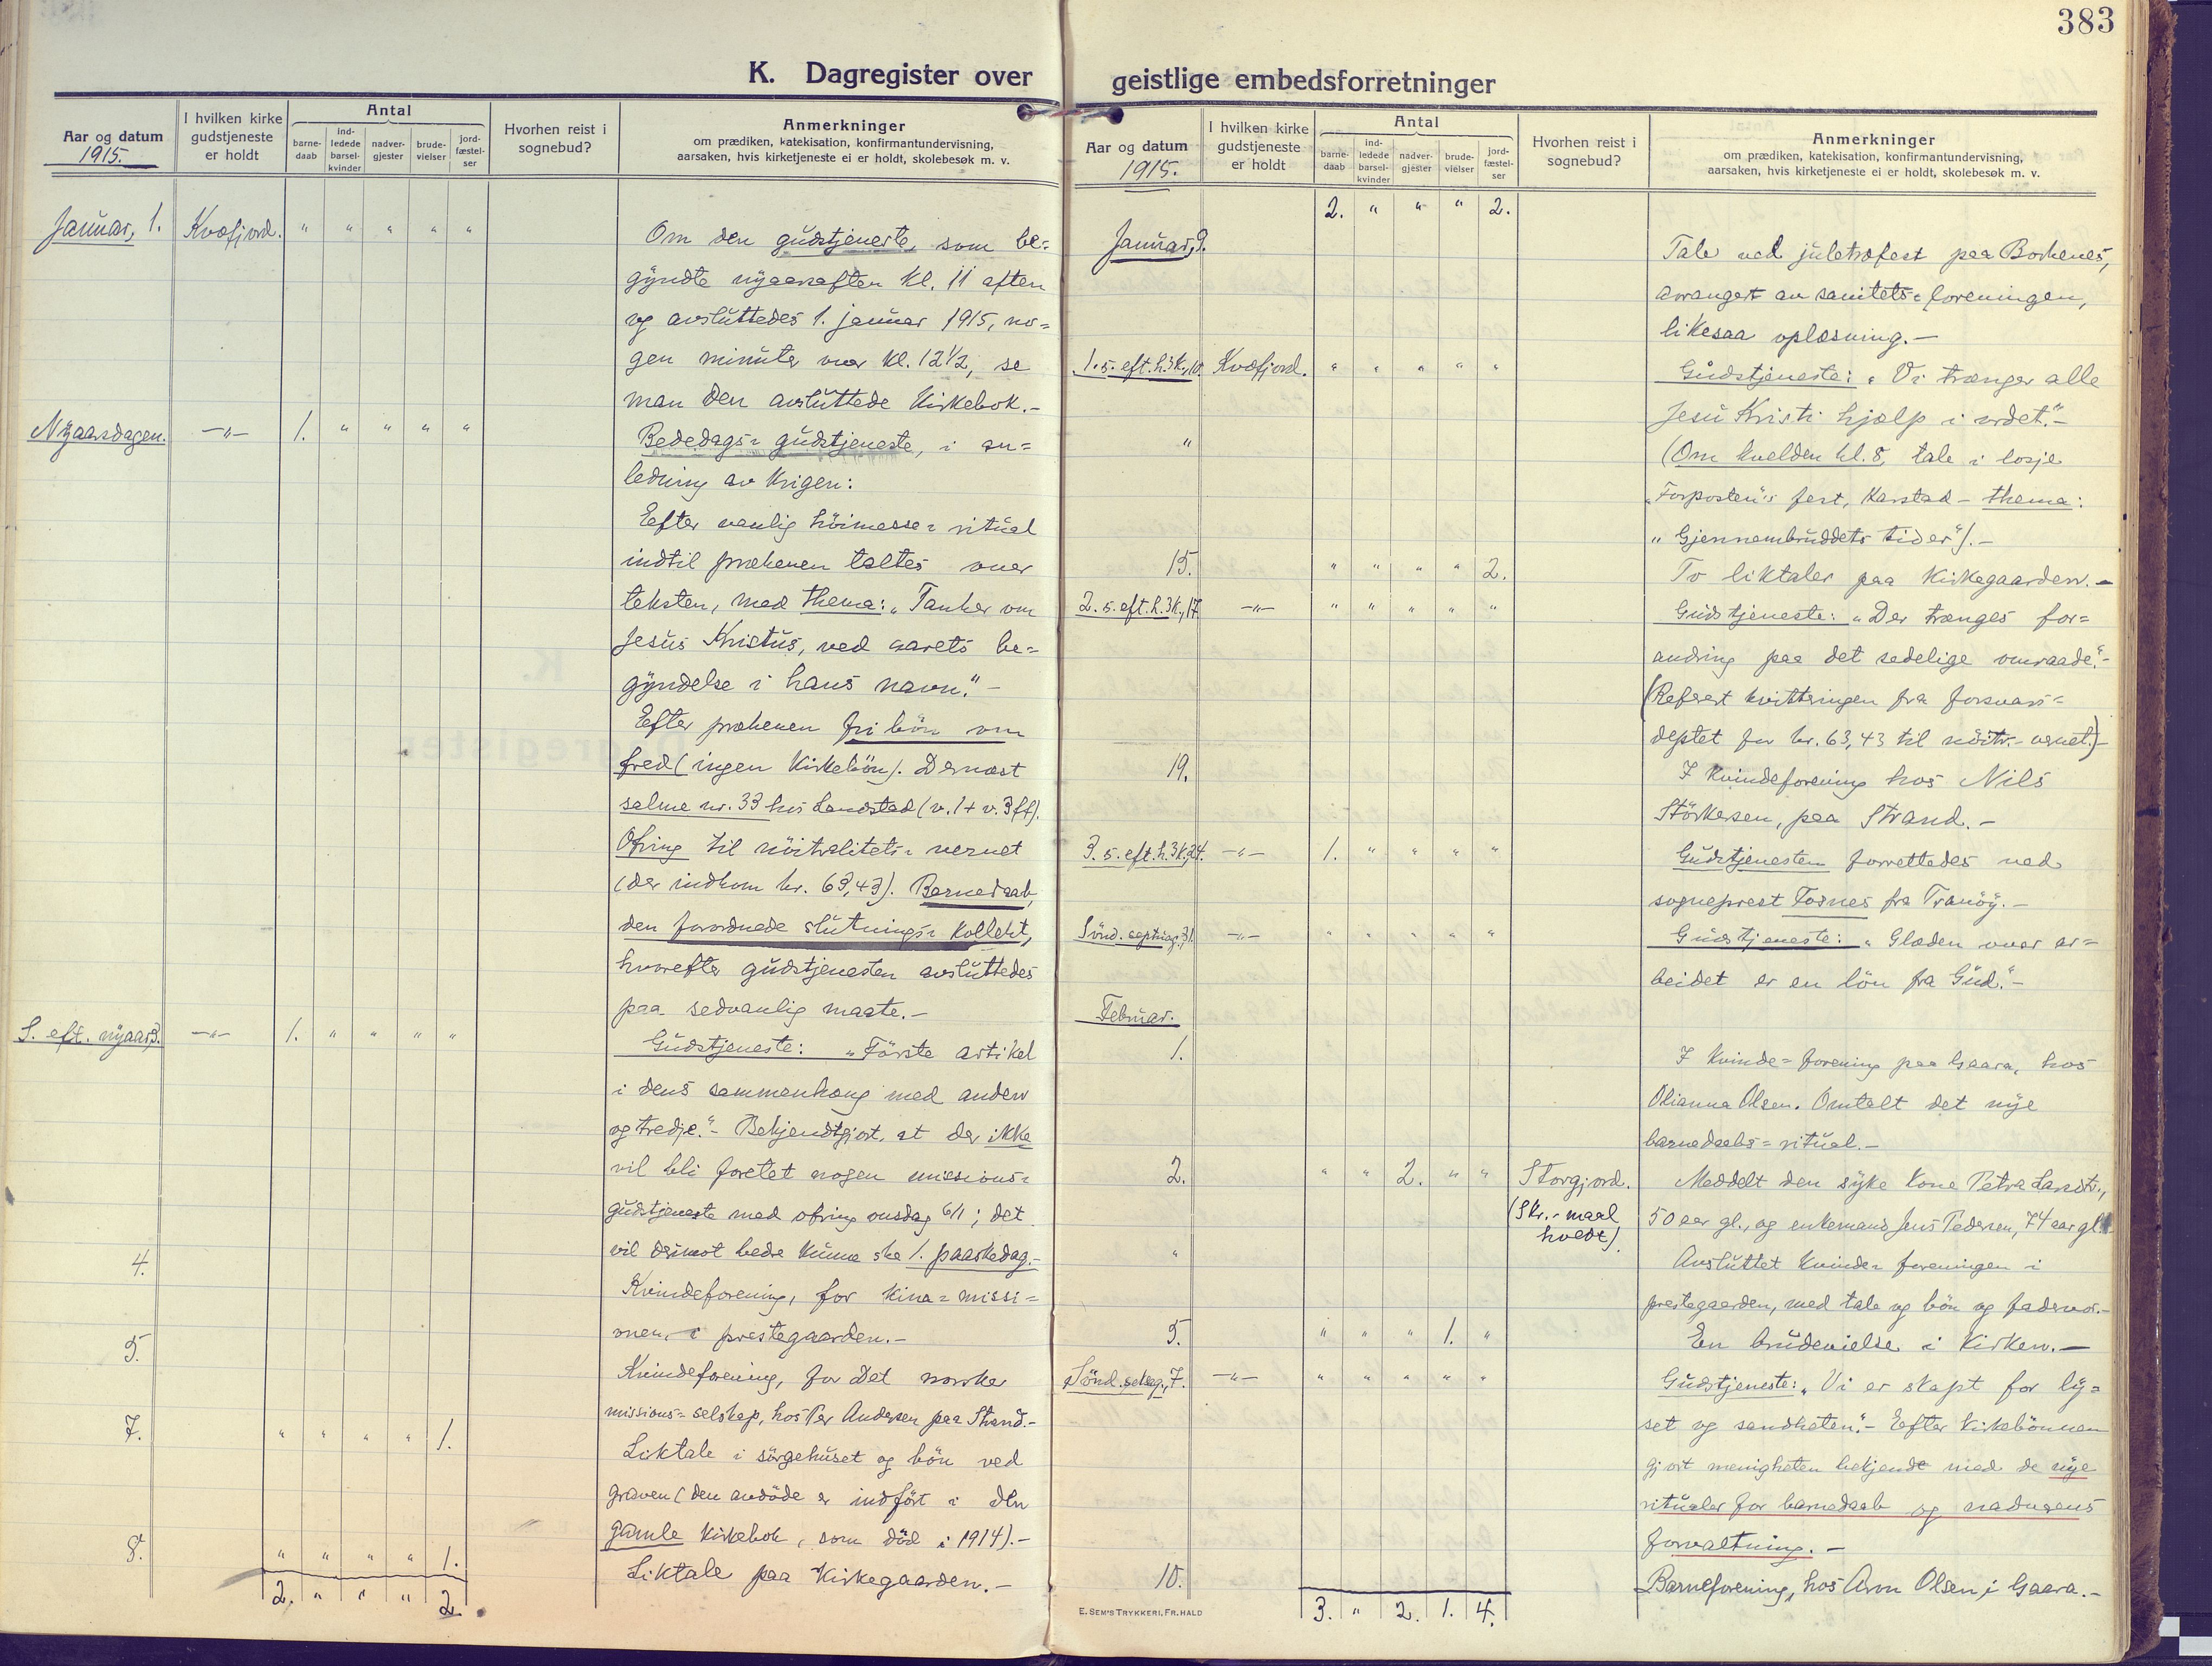 383
K. Dagregister over geistlige embedsforretninger
Aar og datum
1915.
I hvilken kirke
gudstjeneste
er holdt
Antal
barne-
daab
ind-
ledede
barsel-
kvinder
nadver-
gjester
brude-
vielser
jord-
fæstel-
ser
Hvorhen reist i
sognebud?
Anmerkninger
om prædiken, katekisation, konfirmantundervisning,
aarsaken, hvis kirketjeneste ei er holdt, skolebesøk m. v.
Januar, 1. Kvæfjord. " " " " "
Om den gudstjeneste, som be=
gyndte nyaarsaften kl. 11 aften
og avsluttedes 1. januar 1915, no=
gen minuter over kl. 12 1/2, se
man den avsluttede kirkebok.-
Nyaarsdagen. -"- 1. " " " "
Bededags= gudstjeneste, i an=
ledning av krigen:
Efter vanlig höimesse= ritual
indtil prækenen taltes over
teksten, med thema: "Tanker om
Jesus Kristus, ved aarets be=
gyndelse i hans navn."-
Efter prækenen fri bön om
fred (ingen kirkebön). Dernæst
salme nr. 33 hos Landstad (v. 1 + v. 3 ff).
Ofring til nöitralitets= vernet
(der indkom kr. 63,43). Barnedaab,
den forordnede slutnings= kollekt,
hvorefter gudstjenesten avsluttedes
paa sedvanlig maate.-
S. eft. nyaar, 3. -"- 1. " " " "
Gudstjeneste: "Förste artikel
i dens sammenhæng med anden
og tredje."- Bekjendtgjort, at der ikke
vil bli foretat nogen missions=
gudstjeneste med ofring onsdag 6/1; det
vil derimot bedre kunne ske 1. paaskedag.-
4.
Kvindeforening, for kina= missi=
onen, i prestegaarden.-
5.
Kvindeforening, for Det norske
missions= selskap, hos Per Andersen paa Strand.-
7. " " " " 1.
Liktale i sörgehuset og bön ved
graven (den avdöde er indfört i den
gamle kirkebok, som död i 1914).-
8. " " " " 1.
Liktale paa kirkegaarden.-
2. " " " 2.
Aar og datum
1915.
I hvilken kirke
gudstjeneste
er holdt
Antal
barne-
daab
ind-
ledede
barsel-
kvinder
nadver-
gjester
brude-
vielser
jord-
fæstel-
ser
Hvorhen reist i
sognebud?
Anmerkninger
om prædiken, katekisation, konfirmantundervisning,
aarsaken, hvis kirketjeneste ei er holdt, skolebesøk m. v.
2. " " " 2.
Januar, 9.
Tale ved juletræfest paa Borkenes,
arrangert av sanitets= foreningen,
likesaa oplæsning.-
1. s. eft. h. 3 k., 10. Kvæfjord. " " " " "
Gudstjeneste: "Vi trænger alle
Jesu Kristi hjælp i ordet."-
"
(Om kvelden kl. 8, tale i losje
"Forposten"s fest, Harstad - thema:
"Gjennembruddets tider").-
15. " " " " 2.
To liktaler paa kirkegaarden.-
2. s. eft. h. 3 k., 17. -"- " " " " "
Gudstjeneste: "Der trænges for=
andring paa det sedelige omraade."-
(Referert kvitteringen fra forsvars=
deptet for kr. 63,43 til nöitr.- vernet.)-
19.
I kvindeforening hos Nils
Störkersen, paa Strand.-
3. s. eft. h. 3 k., 24. -"- 1. " " " "
Gudstjenesten forrettedes ved
sogneprest Tornes fra Tranöy.-
Sönd. septuag., 31. -"- " " " " "
Gudstjeneste: "Glæden over ar=
beidet er en lön fra Gud."-
Februar.
1.
I kvinde= forening paa Gaara, hos
Olianna Olsen. Omtalt det nye
barnedaabs= ritual.-
2. " " 2. " " Storgjord.
(Skr.- maal
holdt).
Meddelt den syke kone Petra Larsdtr.,
50 aar gl., og enkemand Jens Pedersen, 74 aar gl.
"
Avsluttet kvinde= foreningen i
prestegaarden, med tale og bön og fadervor.-
5. " " " 1. "
En brudevielse i kirken.-
Sönd. seksag., 7. -"- " " " " "
Gudstjeneste: "Vi er skapt for ly=
set og sandheten."- Efter kirkebönnen
gjort menigheten bekjendt med de nye
ritualer for barnedaab og nadverens
forvaltning.-
10.
Barneforening, hos Aron Olsen, i Gaara.-
3. " 2. 1. 4.
E. SEM'S TRYKKERI, FR.HALD